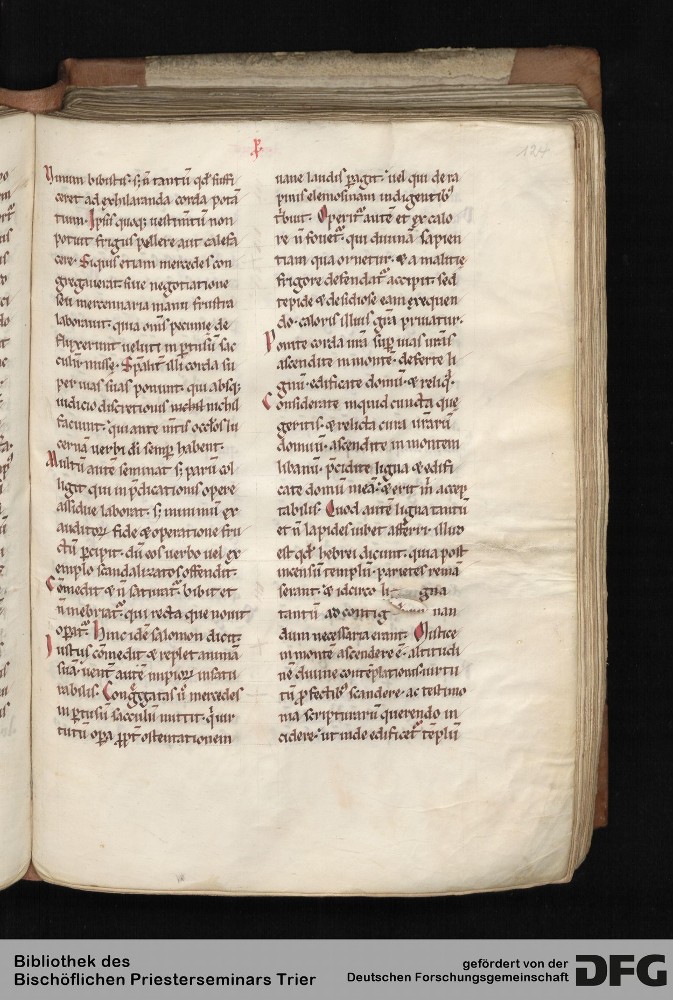 p̄.
124
Vinum bibistis. s; n̄ tantū qđ suffi
ceret ad exhilaranda corda potā
tium. Ipsis quoq; uestim̄tū non
potuit frigus pellere aut calefa
cere. Siquis etiam mercedes con
gregauerat. siue negotiatione
seu mercennaria manu frustra
laborauit. quia om̄is pecunie de
fluxerunt ueluti in ꝑtusū sac
culū misse. Sp̄alit̄ illi corda su
per uias suas ponunt. qui absq;
iudicio discretionis nichil
faciunt. qui ante m̄tis oc̄los lu
cernā uerbi di semꝑ habent.
Multū aute seminat s; parū col
ligit qui in p̄dicationis opere
assidue laborat. s; minimū ex
auditoꝝ fide & operatione fru
ctū ꝑcipit. dū eos uerbo uel ex
emplo scandalizatos offendit.
Comedit & n̄ satiat̄. bibit et
n̄ inebriat̄. qui recta que nouit
oꝑat̄. Hinc idē salomon dicit.
Iustus com̄edit & replet animā
suā. uent̄ autē impioꝝ insatu
rabilis. Conḡgatas ū mercedes
in ꝑtusū sacculū mittit. q̄ uir
tutū oꝑa ꝓpt̄ ostentationem
uane laudis ꝑagit. uel qui de ra
pinis elemosinam indigentibꝰ
t̄buit. Operit̄ autē et ex calo
re n̄ fouet̄. qui diuinā sapien
tiam qua ornetur. & a malitie
frigore defendat̄ accipit. sed
tepide & desidiose eam exequen
do. caloris illius gr̄a priuatur.
Ponite corda ur̄a suꝑ uias ur̄as
ascendite in monte. deferte li
gnū. edificate domū. & reliq̄.
Considerate inquid cuncta que
geritis. & relicta cura ur̄arū
domuū. ascendite in montem
libanū. p̄cidite ligna & edifi
cate domū meā. & erit m̄ accep
tabilis. Quod autē ligna tantū
et n̄ lapides iubet afferri. illud
est qđ hebrei dicunt. quia post
incensū templū. parietes remā
serant. & idcirco li gna
tantū ad contig nan
dum necessaria erant. Mistice
in monte ascendere ē. altitudi
nē diuine contēplationis. uirtu
tū ꝓfectibꝰ scandere. ac testimo
nia scripturarū querendo in
cidere. ut inde edificet̄ tēplū
Bibliothek des
Bischöflichen Priesterseminars Trier
gefördert von der
Deutschen Forschungsgemeinschaft
DFG